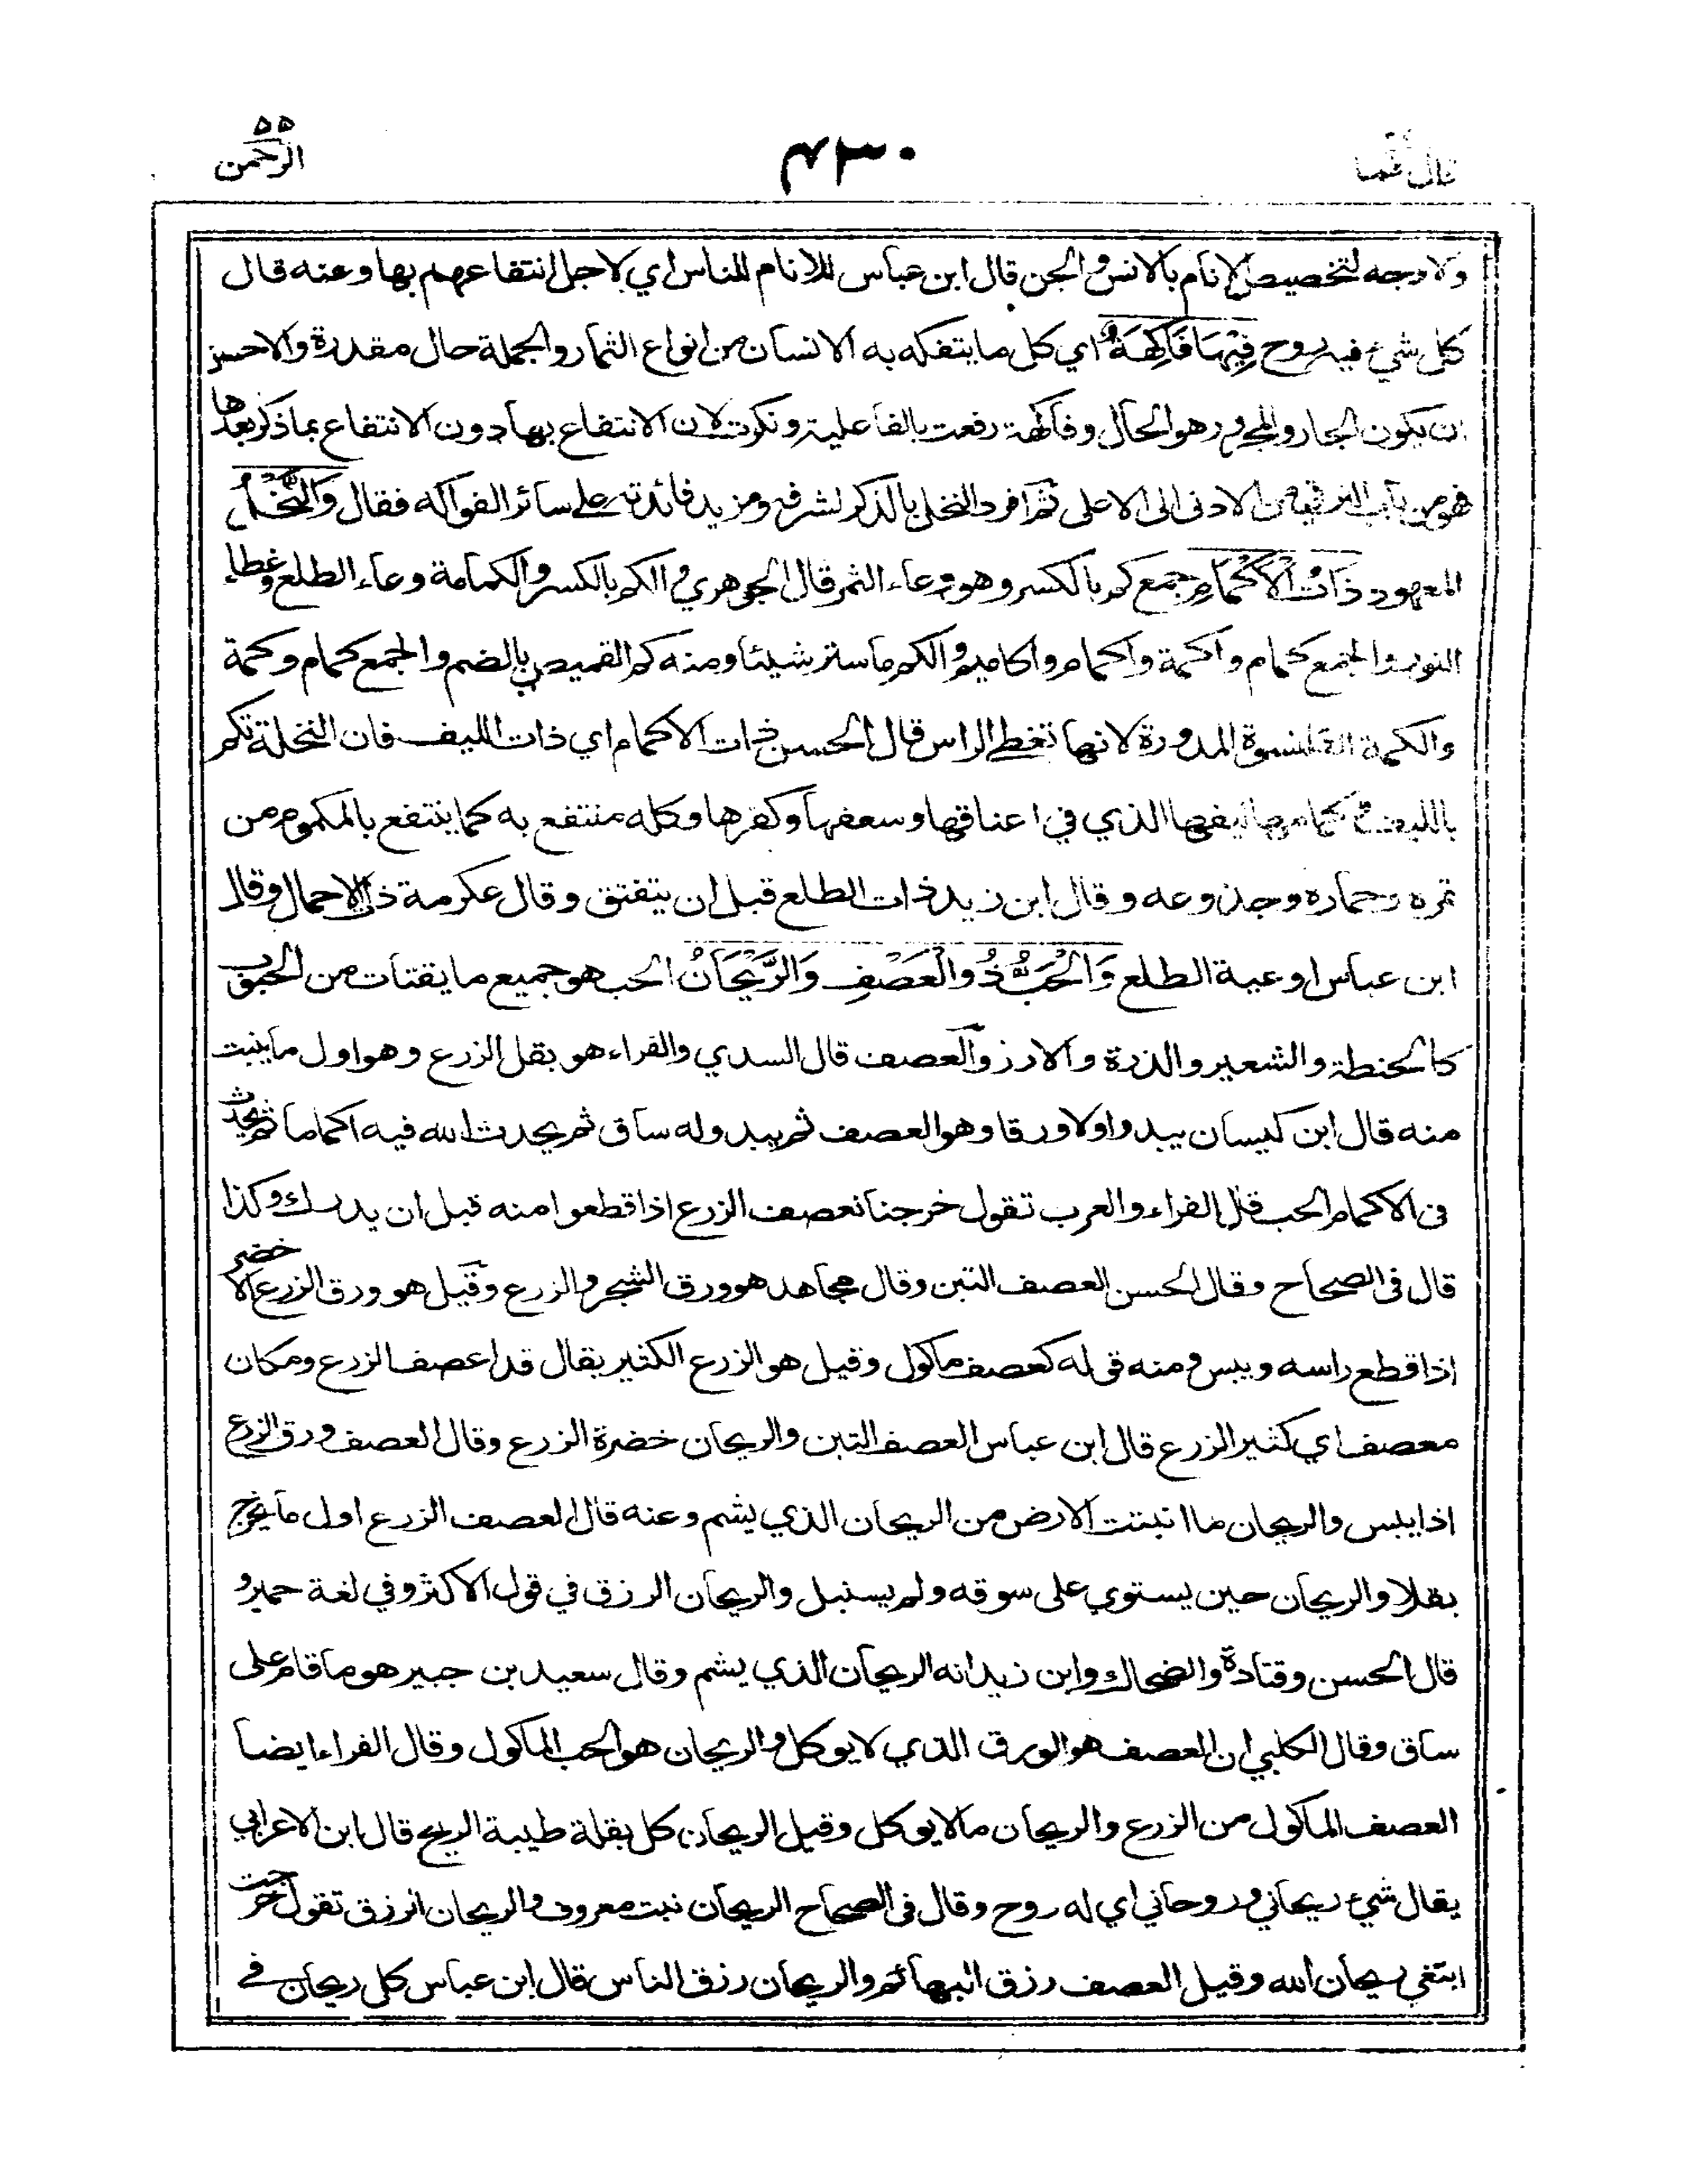 قال فما
٤٣٠
الرحمن ٥٥
ولا وجه لتخصيص الانام بالانس والجن قال ابن عباس للانام للناس اي لاجل انتفاعهم بها وعنه قال
كل شيء فيه روح فِيْهَا فَاكِهَةٌ اي كل ما يتفكه به الانسان من انواع الثمار والجملة حال مقدرة والاحسن
ان يكون الجار والمجرور هو الحال وفاكهة رفعت بالفاعلية ونكرت لان الانتفاع بها دون الانتفاع بما ذكر بعدها
فهو من باب الترقي من الادنى الى الاعلى ثم افرد النخل بالذكر لشرفه ومزيد فائدته على سائر الفواكه فقال وَالنَّخْلُ
المعهود ذَاتُ الْاَكْمَامِ جمع كم بالكسر وهو وعاء الثمر قال الجوهري والكم بالكسر والكمامة وعاء الطلع وغطاء
النور والجمع كمام واكمة واكمام واكاميم والكم ما ستر شيئا ومنه كم القميص بالضم والجمع كمام وكمة
والكمة القلنسوة المدورة لانها تغطي الراس قال الحسن ذات الاكمام اي ذات الليف فان النخلة تكم
بالليف وكمامها ليفها الذي في اعناقها وسعفها وكفرها وكله منتفع به كما ينتفع بالمكموم من
ثمره وجماره وجذوعه وقال ابن زيد ذات الطلع قبل ان يتفتق وقال عكرمة ذات الاحمال وقال
ابن عباس اوعية الطلع وَالْحَبُّ ذُو الْعَصْفِ وَالرَّيْحَانُ الحب هو جميع ما يقتات من الحبوب
كالحنطة والشعير والذرة والارز والعصف قال السدي والفراء هو بقل الزرع وهو اول ما ينبت
منه قال ابن كيسان يبدو اولا ورقا وهو العصف ثم يبدو له ساق ثم يحدث الله فيه اكماما ثم يحدث
فى الاكمام الحب قال الفراء والعرب تقول خرجنا نعصف الزرع اذا قطعوا منه قبل ان يدرك وكذا
قال فى الصحاح وقال الحسن العصف التبن وقال مجاهد هو ورق الشجر والزرع وقيل هو ورق الزرع الاخضر
اذا قطع راسه ويبس ومنه قوله كعصف ماكول وقيل هو الزرع الكثير يقال قد اعصف الزرع ومكان
معصف اي كثير الزرع قال ابن عباس العصف التبن والريحان خضرة الزرع وقال العصف ورق الزرع
اذا يبس والريحان ما انبتت الارض من الريحان الذي يشم وعنه قال العصف الزرع اول ما يخرج
بقلا والريحان حين يستوي على سوقه ولم يسنبل والريحان الرزق في قول الاكثر وفي لغة حمير و
قال الحسن وقتادة والضحاك وابن زيد انه الريحان الذي يشم وقال سعيد بن جبير هو ما قام على
ساق وقال الكلبي ان العصف هو الورق الذي لا يوكل والريحان هو الحب الماكول وقال الفراء ايضا
العصف الماكول من الزرع والريحان ما لا يوكل وقيل الريحان كل بقلة طيبة الريح قال ابن الاعرابي
يقال شيء ريحاني وروحاني اي له روح وقال فى الصحاح الريحان نبت معروف والريحان الرزق تقول خرجت
ابتغي ريحان الله وقيل العصف رزق البهائم والريحان رزق الناس قال ابن عباس كل ريحان في